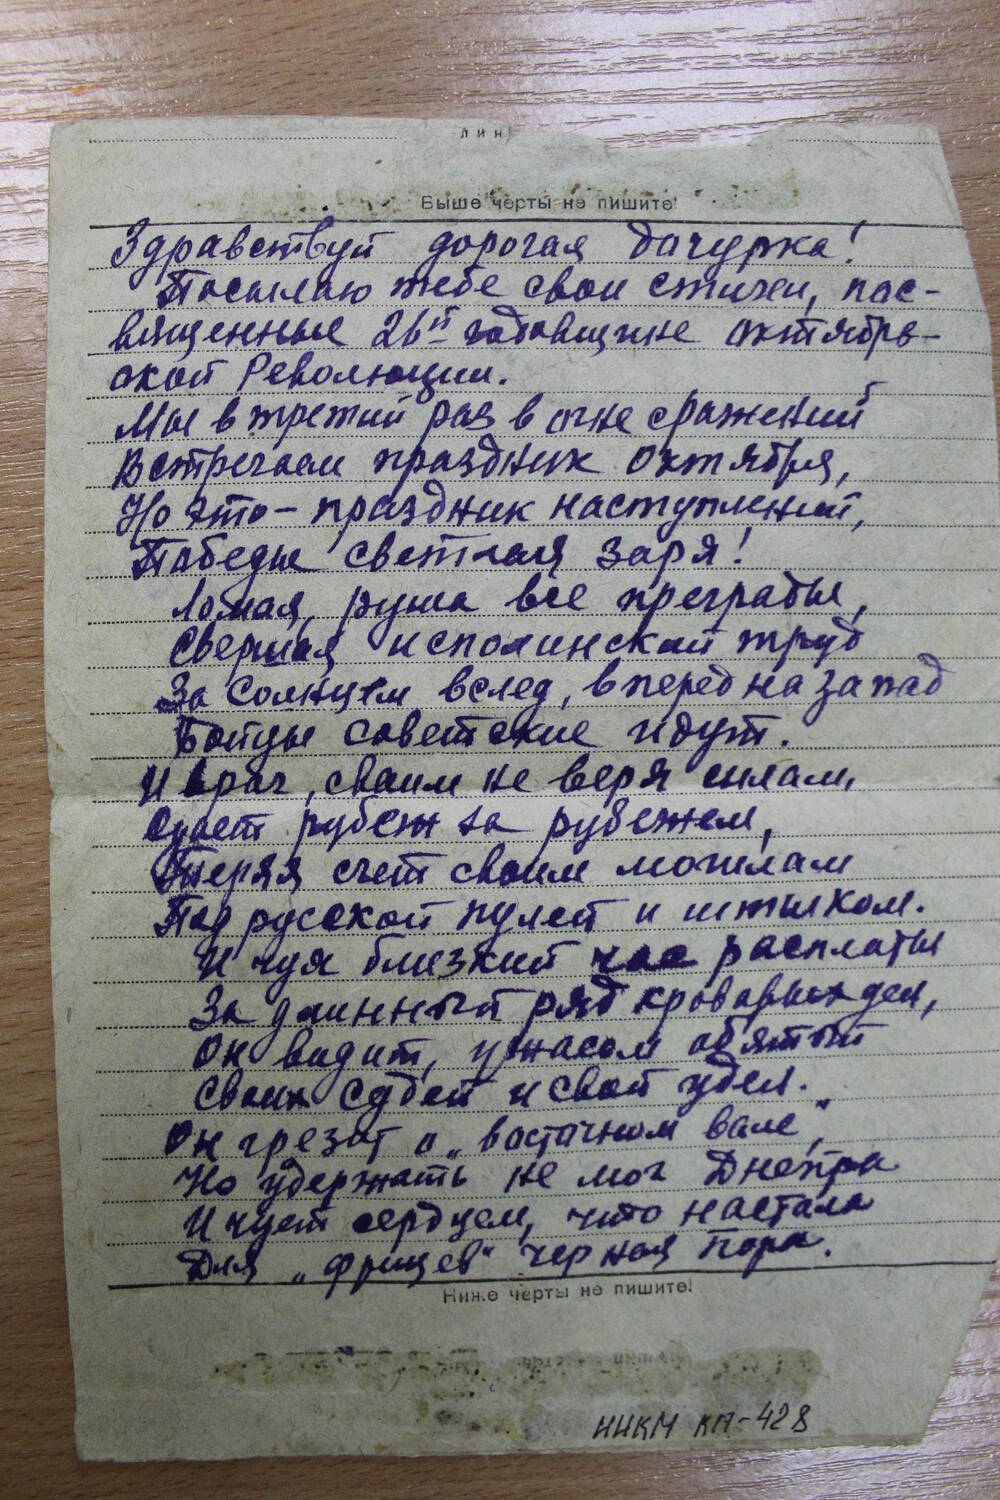 лин
Выше черты не пишите!
Здравствуй дорогая дачурка!
Посылаю тебе свои стихи, пос-
вященные 26й годовщине октябрь-
ской Революции.
Мы в третий раз в огне сражений
Встречаем праздник октября,
Но это - праздник наступлений,
Победы светлая заря!
Ломая, руша все преграды,
Свершая исполинский труд
За солнцем вслед, вперед на запад
Бойцы советские идут.
И враг, своим не веря силам,
Сдает рубеж за рубежем,
Теряя счет своим могилам
Под русской пулей и штыком.
И чуя близкий час расплаты
За длинный ряд кровавых дел,
Он видит, ужасом обятый
Своих судей и свой удел.
Он грезит о „восточном вале“,
Но удержать не мог Днепра
И чует сердцем, что настала
Для „фрицев“ черная пора.
Ниже черты не пишите!
НИКМ КП-428